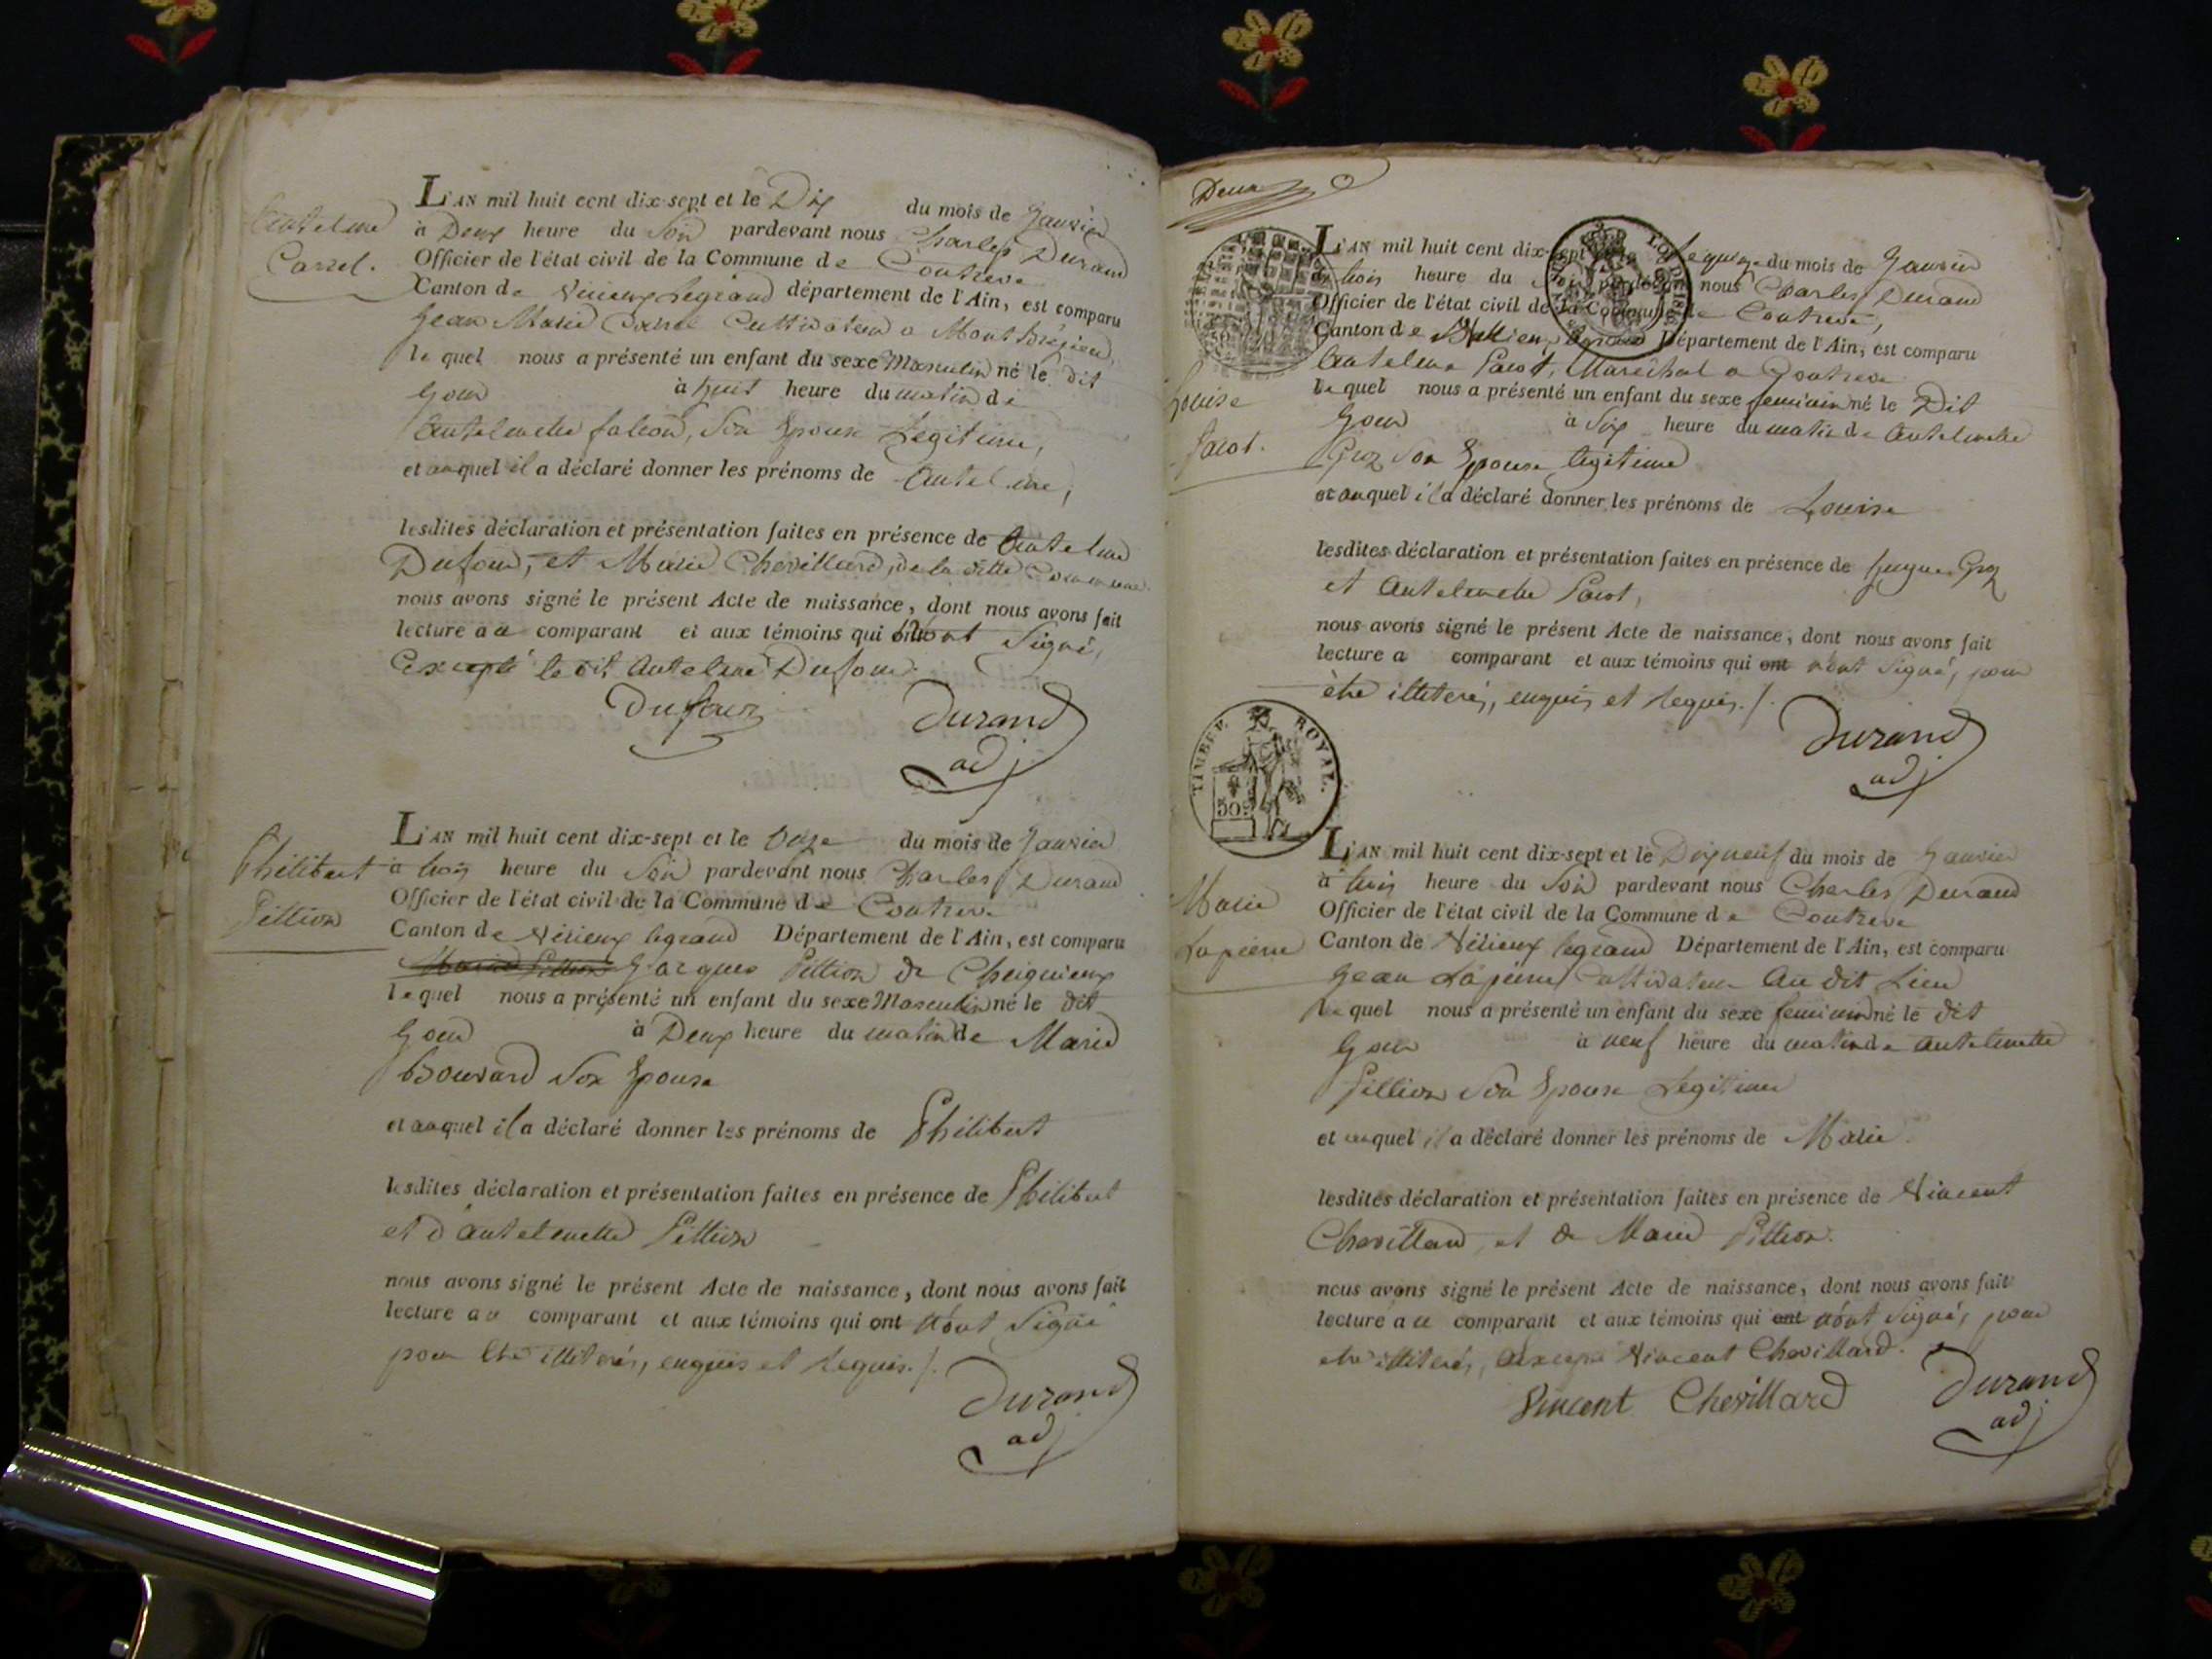 Antelme
Carrel.
L'AN mil huit cent dix-sept et le Dix du mois de Janvier
à Deux heure du Soir pardevant nous Charles Durand
Officier de l'état civil de la Commune de Contrevo
Canton de Virieux Legrand département de l'Ain, est comparu
Jean Marie Carrel Cultivateur a Montbregieu,
lequel nous a présenté un enfant du sexe Masculin né le dit
jour à huit heure du matin de
Antelmette falcon, Son Epouse Legitime,
et auquel il a déclaré donner les prénoms de Antelme,
lesdites déclaration et présentation faites en présence de Antelme
Dufour, et Marie Chevillard, de la ditte Commune
nous avons signé le présent Acte de naissance, dont nous avons fait
lecture au comparant et aux témoins qui ont Signé,
Excepté le dit Antelme Dufour.
Dufour Durand
adj
Philibert
Pillion
L'AN mil huit cent dix-sept et le Onze du mois de Janvier
à trois heure du Soir pardevant nous Charles Durand
Officier de l'état civil de la Commune de Contrevo
Canton de Virieux legrand Département de l'Ain, est comparu
Marie Pillion Jacques Pillion de Cheignieux
lequel nous a présenté un enfant du sexe Masculin né le dit
jour à Deux heure du matin de Marie
Bouvard Son Epouse
et auquel il a déclaré donner les prénoms de Philibert
lesdites déclaration et présentation faites en présence de Philibert
et d'Antelmette Pillion
nous avons signé le présent Acte de naissance, dont nous avons fait
lecture au comparant et aux témoins qui ont n'ont Signé
pour être illiterés, enquis et requis./.
Durand
adj
Deux
Louise
L'AN mil huit cent dix-sept et le quinze du mois de Janvier
à trois heure du Soir pardevant nous Charles Durand
Officier de l'état civil de la Commune de Contrevo,
Canton de Département de l'Ain, est comparu
Antelme Marechal a Contrevo
lequel nous a présenté un enfant du sexe feminin né le Dit
jour à Six heure du matin de Antelmette
Groz Son Epouse legitime
et auquel il a déclaré donner les prénoms de Louise
lesdites déclaration et présentation faites en présence de hugues Groz
et Antelmette
nous avons signé le présent Acte de naissance, dont nous avons fait
lecture a comparant et aux témoins qui ont n'ont Signé, pour
être illiterés, enquis et requis./.
Durand
adj
TIMBRE ROYAL.
50c
Marie
Lapierre
L'AN mil huit cent dix-sept et le Dixneuf du mois de Janvier
à trois heure du Soir pardevant nous Charles Durand
Officier de l'état civil de la Commune de Contrevo
Canton de Virieux legrand Département de l'Ain, est comparu
Jean Lapierre Cultivateur Au dit Lieu
lequel nous a présenté un enfant du sexe feminin né le dit
jour à neuf heure du matin de Antelmette
Pillion Son Epouse Legitime
et auquel il a déclaré donner les prénoms de Marie
lesdites déclaration et présentation faites en présence de Vincent
Chevillard, et de Marie Pillion.
nous avons signé le présent Acte de naissance, dont nous avons fait
lecture au comparant et aux témoins qui ont n'ont Signé, pour
etre illiterés, Vincent Chevillard.
Vincent Chevillard Durand
adj